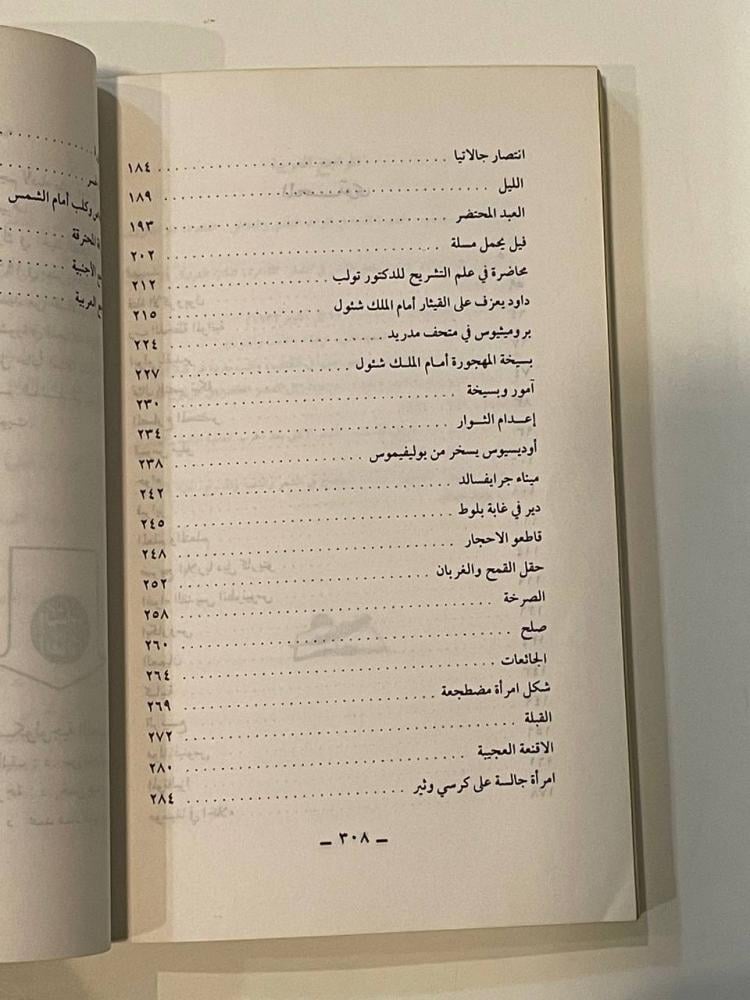 انتصار جالاتيا ........ ١٨٤
الليل ........ ١٨٩
العبد المحتضر ........ ١٩٣
فيل يحمل مسلة ........ ٢٠٢
محاضرة في علم التشريح للدكتور تولب ........ ٢١٢
داود يعزف على القيثار أمام الملك شئول ........ ٢١٥
بروميثيوس في متحف مدريد ........ ٢٢٤
بسيخة المهجورة أمام الملك شئول ........ ٢٢٧
آمور وبسيخة ........ ٢٣٠
إعدام الثوار ........ ٢٣٤
أوديسيوس يسخر من بوليفيموس ........ ٢٣٨
ميناء جرايفسالد ........ ٢٤٢
دير في غابة بلوط ........ ٢٤٥
قاطعو الاحجار ........ ٢٤٨
حقل القمح والغربان ........ ٢٥٢
الصرخة ........ ٢٥٨
صلح ........ ٢٦٠
الجائعات ........ ٢٦٤
شكل امرأة مضطجعة ........ ٢٦٩
القبلة ........ ٢٧٢
الاقنعة العجيبة ........ ٢٨٠
امرأة جالسة على كرسي وثير ........ ٢٨٤
ـ ٣٠٨ ـ
وكلب أمام الشمس
الأجنبية
العربية